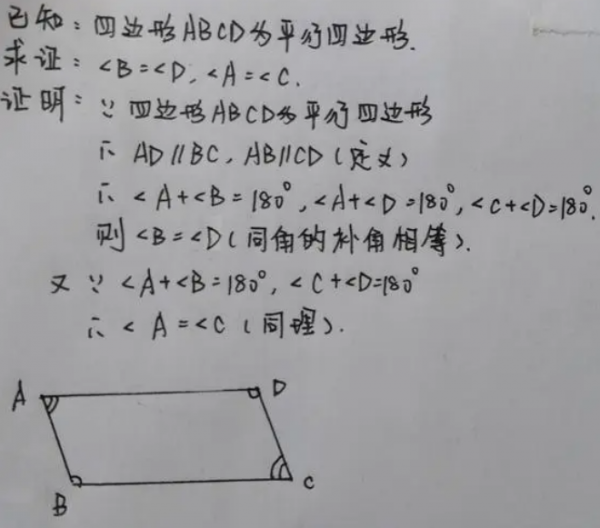 已知：四边形ABCD为平行四边形.
求证：<B=<D,<A=<C.
证明：∵四边形ABCD为平行四边形
∴ AD∥BC,AB∥CD(定义)
∴ <A+<B=180°,<A+<D=180°,<C+<D=180°.
则<B=<D(同角的补角相等).
又∵<A+<B=180°,<C+<D=180°
∴ <A=<C(同理).
A D
B C